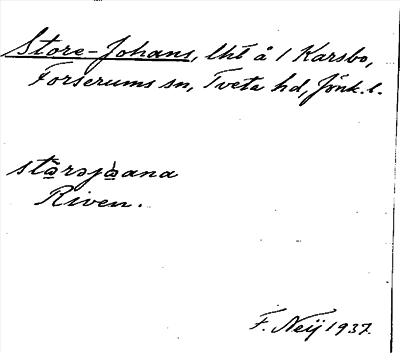 Store-Johans, lht å 1 Karsbo,
Forserums sn, Tveta hd, Jönk. l.
stɷ̀rəjɷ̀ana
Riven.
F. Neij 1937.